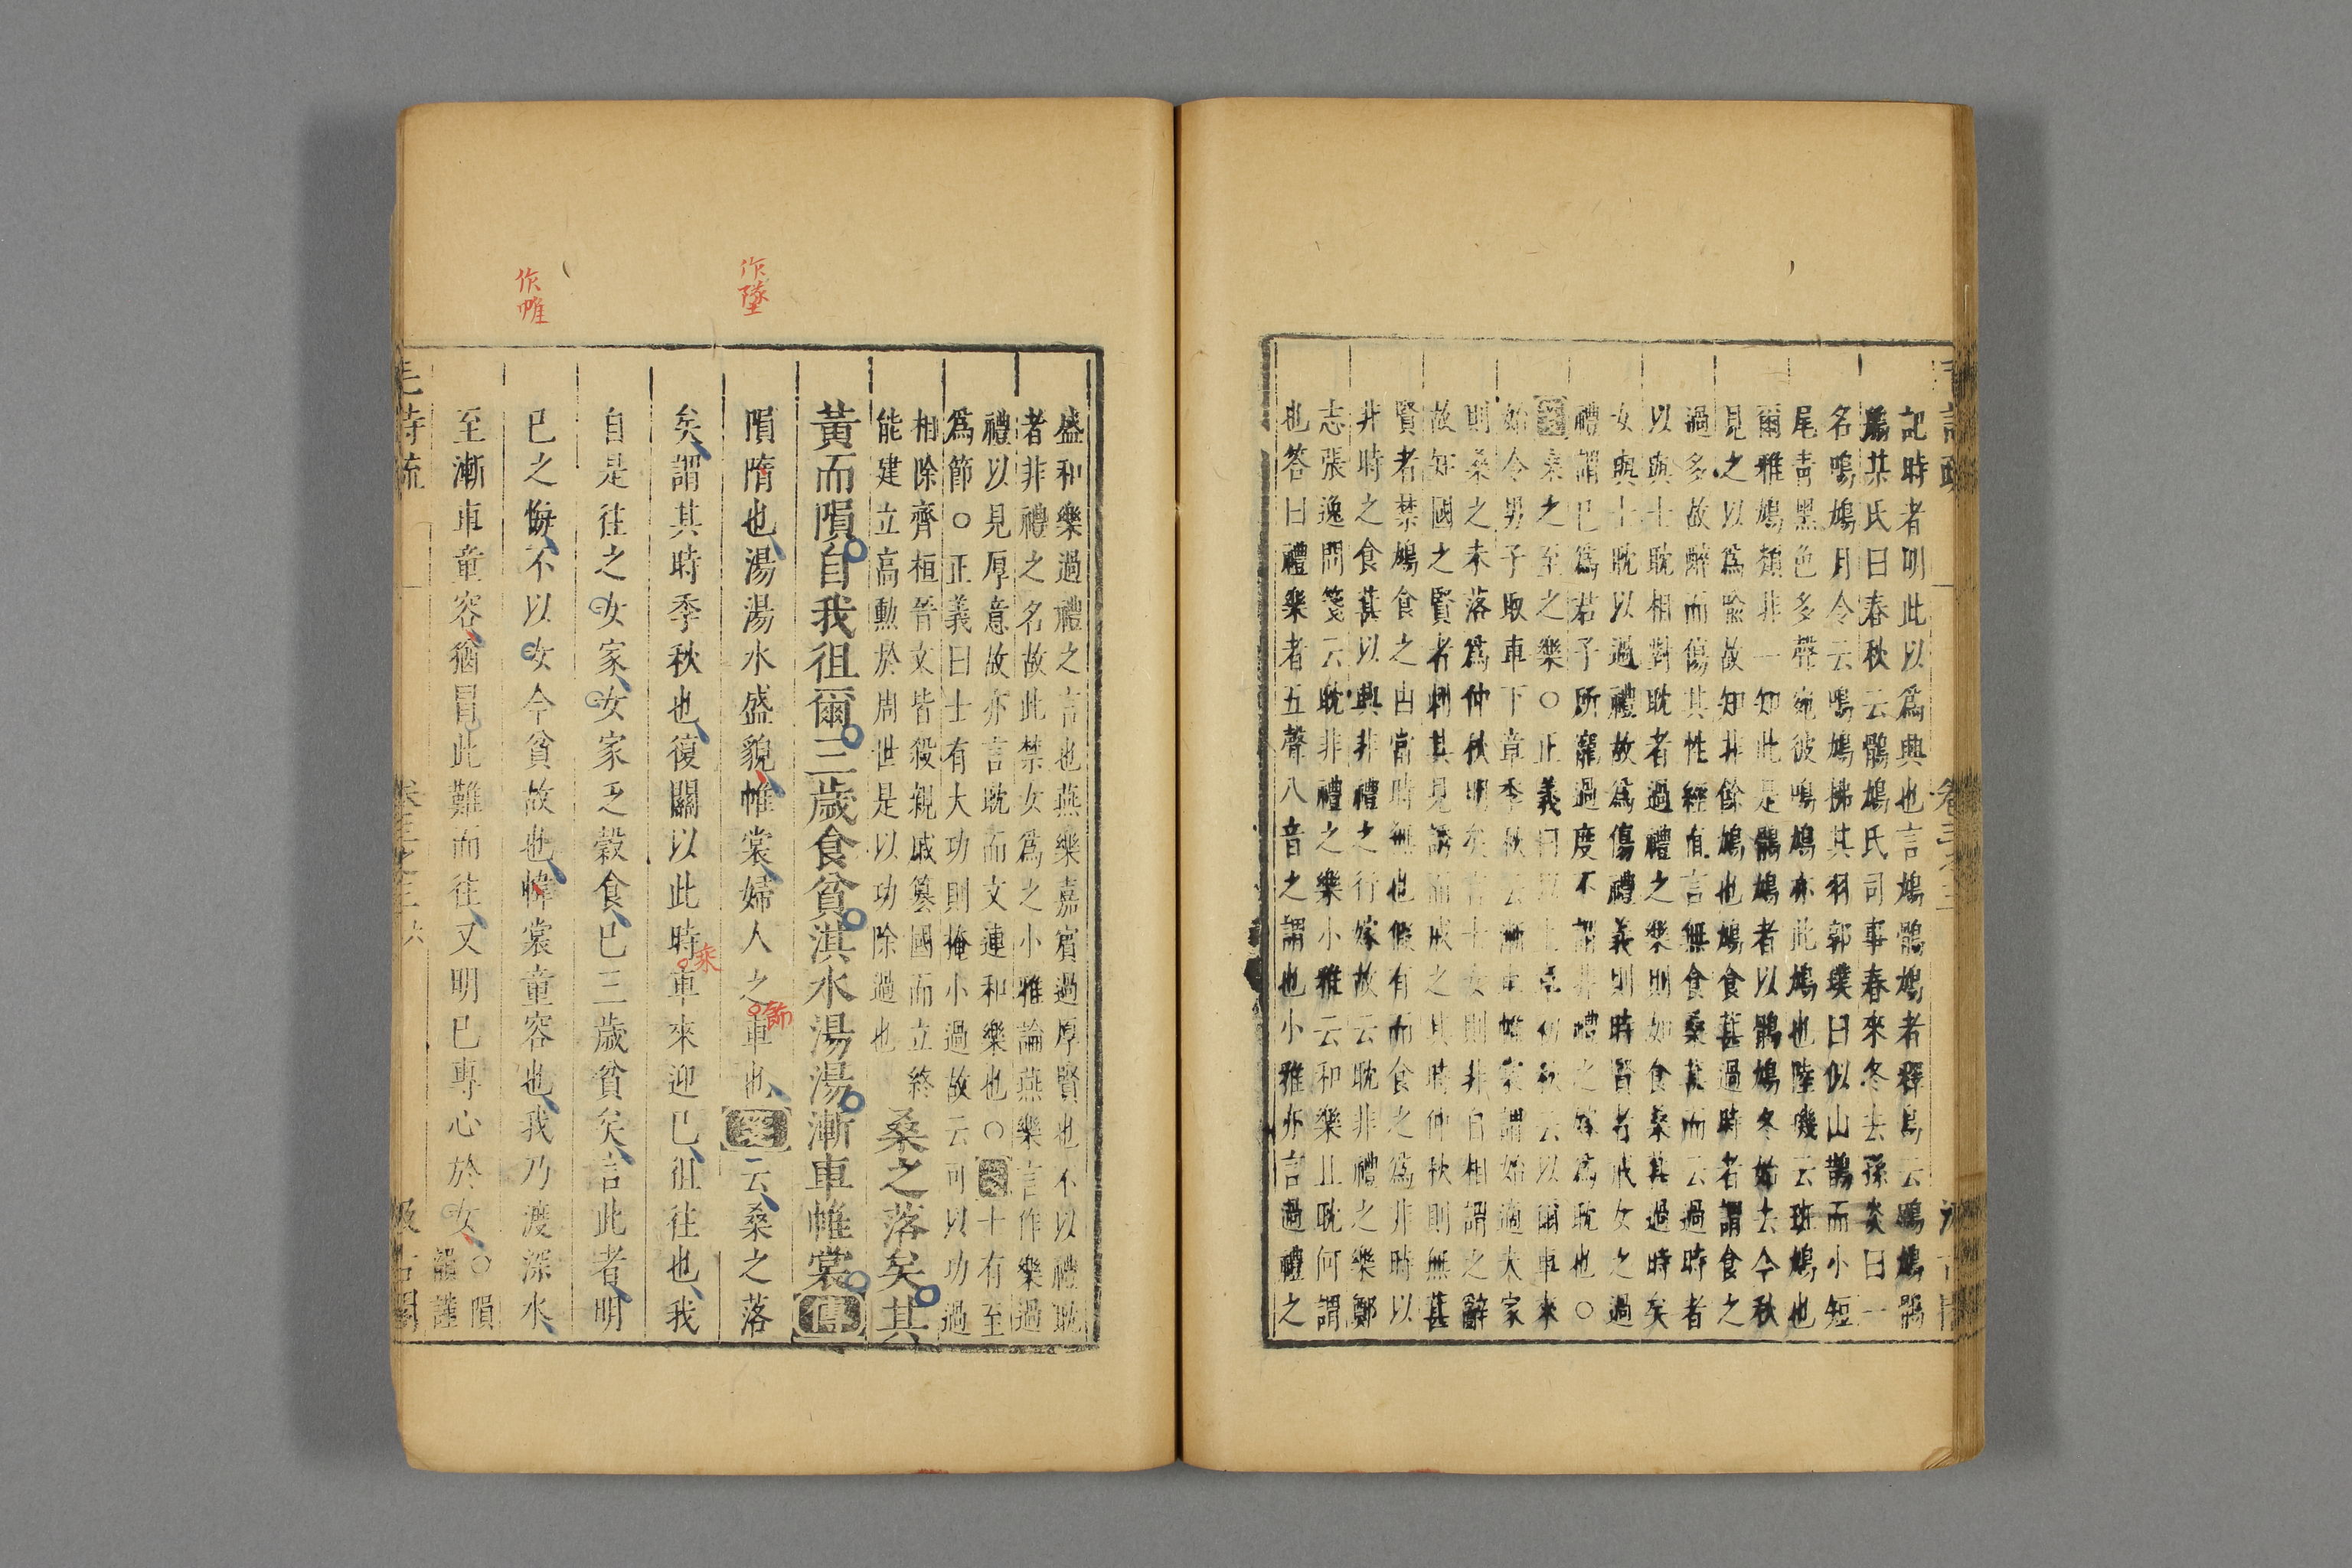 記時者明此以爲興也言鳩鶻鳩者釋鳥云鶌鳩鶻
鳩某氏曰春秋云鶻鳩氏司事春來冬去孫炎曰一
名鳴鳩月令云鳴鳩拂其羽郭璞曰似山鵲而小短
尾青黑色多聲宛彼鳴鳩亦此鳩也陸璣云班鳩也
爾雅鳩類非一知此是鶻鳩者以鶻鳩冬始去今秋
見之以爲喻故知非餘鳩也鳩食葚過時者謂食之
過多故醉而傷其性經直言無食桑葚而云過時者
以與士耽相對耽者過禮之樂則如食桑葚過時矣
女與士耽以過禮故爲傷禮義則時賢者戒女之過
禮謂己爲君子所寵過度不謂非禮之嫁爲耽也○
箋桑之至之樂○正義曰以上章初秋云以爾車來
始令男子取車下章季秋云漸車帷裳謂始適夫家
則桑之未落爲仲秋明矣言士女則非自相謂之辭
故知國之賢者刺其見誘而戒之其時仲秋則無葚
賢者禁鳩食之由當時無也假有而食之爲非時以
非時之食葚以興非禮之行嫁故云耽非禮之樂鄭
志張逸問箋云耽非禮之樂小雅云和樂且耽何謂
也答曰禮樂者五聲八音之謂也小雅亦言過禮之
盛和樂過禮之言也燕樂嘉賓過厚賢也不以禮耽
者非禮之名故此禁女爲之小雅論燕樂言作樂過
禮以見厚意故亦言耽而文連和樂也○箋士有至
爲節○正義曰士有大功則掩小過故云可以功過
相除齊桓晉文皆殺親戚篡國而立終
能建立高勳於周世是以功除過也
桑之落矣其
黃而隕自我徂爾三歲食貧淇水湯湯漸車帷裳傳
作墜
隕隋也湯湯水盛貌帷裳婦人之車也箋云桑之落
飾
矣謂其時季秋也復關以此時車來迎已徂往也我
乘
自是往之女家女家乏穀食已三歲貧矣言此者明
作帷
已之悔不以女今貧故也幃裳童容也我乃渡深水
至漸車童容猶冒此難而往又明已專心於女
○隕
韻謹
毛詩疏 卷三之三 六 汲古閣